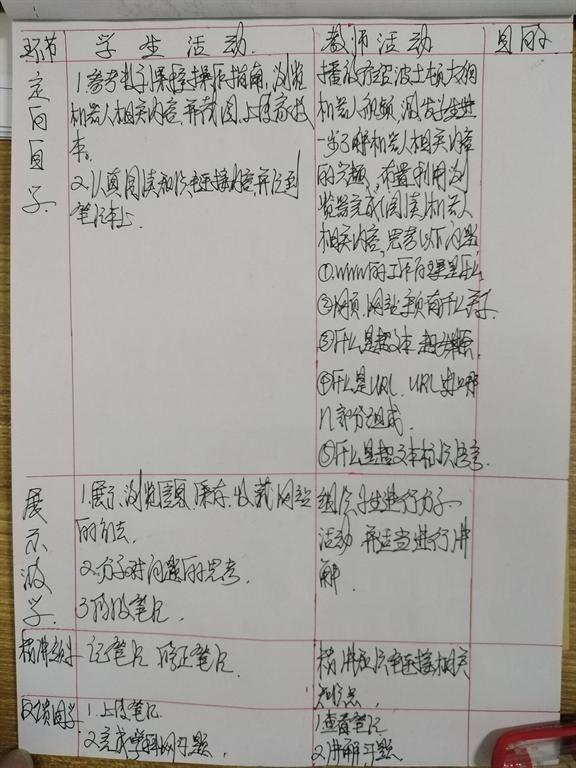 环节 学生活动. 教师活动 目的
定向自学
1.参考电子课堂操作指南,浏览
机器人相关内容,并截图,上传高校
本。
2.认真阅读知识链接内容,并记到
笔记本上.
播放 波士顿大狗
机器人视频,激发学生进
一步了解机器人相关内容
的兴趣,布置利用浏
览器完成(阅读)机器人
相关内容,思考以下问题,
①.www的工作原理是什么
②网页、网站、主页有什么关系
③什么是超文本、超媒体.
④什么是URL, URL由哪
几部分组成.
⑤什么是超文本标识语言.
展示激学
1.展示、浏览信息、保存、收藏网站
的方法.
2.分享对问题的思考.
3.修改笔记.
组织学生进行分享
活动 并适当进行讲
解.
精讲 记笔记 修正笔记.
精讲知识链接相关
知识点.
反馈固学
1.上传笔记
2.完成学科网习题.
1.查看笔记
2.讲解习题